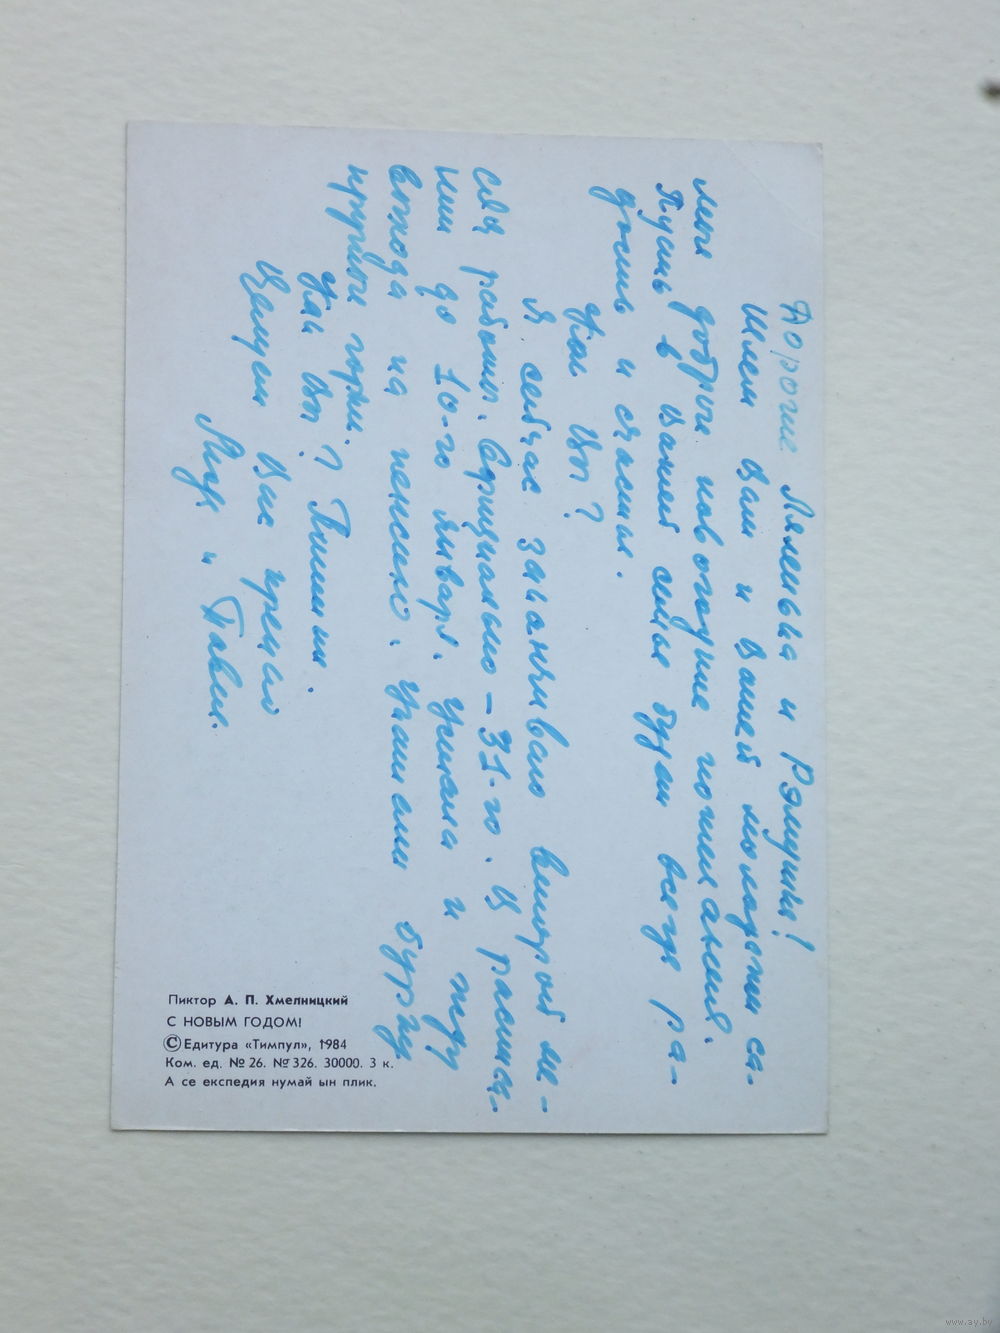 Дорогие Лялечка и Рэмушка!
Шлем Вам и Вашей молодежи са-
мые добрые новогодние пожелания.
Пусть в Вашей семье будет всегда ра-
дость и счастье.
Как Вы?
Я сейчас заканчиваю второй ме-
сяц работы. Официально – 31-го. Я
ним до 10-го января. и жду
выхода на пенсию. буржу
Как Вы? Пишите.
Целуем Вас крепко
и Павел.
Пиктор А. П. Хмелницкий
С НОВЫМ ГОДОМ!
© Едитура «Тимпул», 1984
Ком. ед. №26. №326. 30000. 3 к.
А се експедия нумай ын плик.
www.ay.by